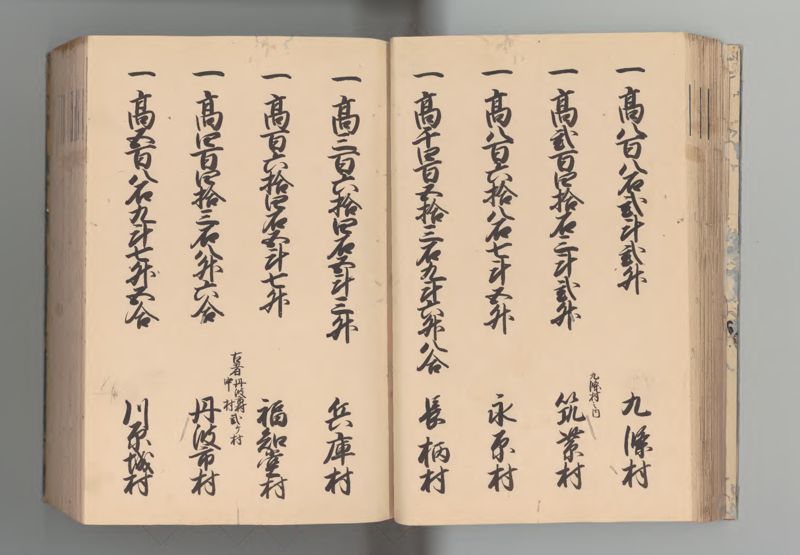 一 高八百八石弐斗弐升 九條村
一 高弐百四拾石三斗弐升
九條村之内
筑紫村
一 高八百六拾八石七斗五升 永原村
一 高千四百五拾三石九斗六升八合 長柄村
一 高三百六拾四石五斗三升 兵庫村
一 高百六拾四石五斗七升 福知堂村
一 高四百四拾三石八升六合
古者丹波市村
中村 弐ケ村
丹波市村
一 高五百八石九斗七升五合 川原城村